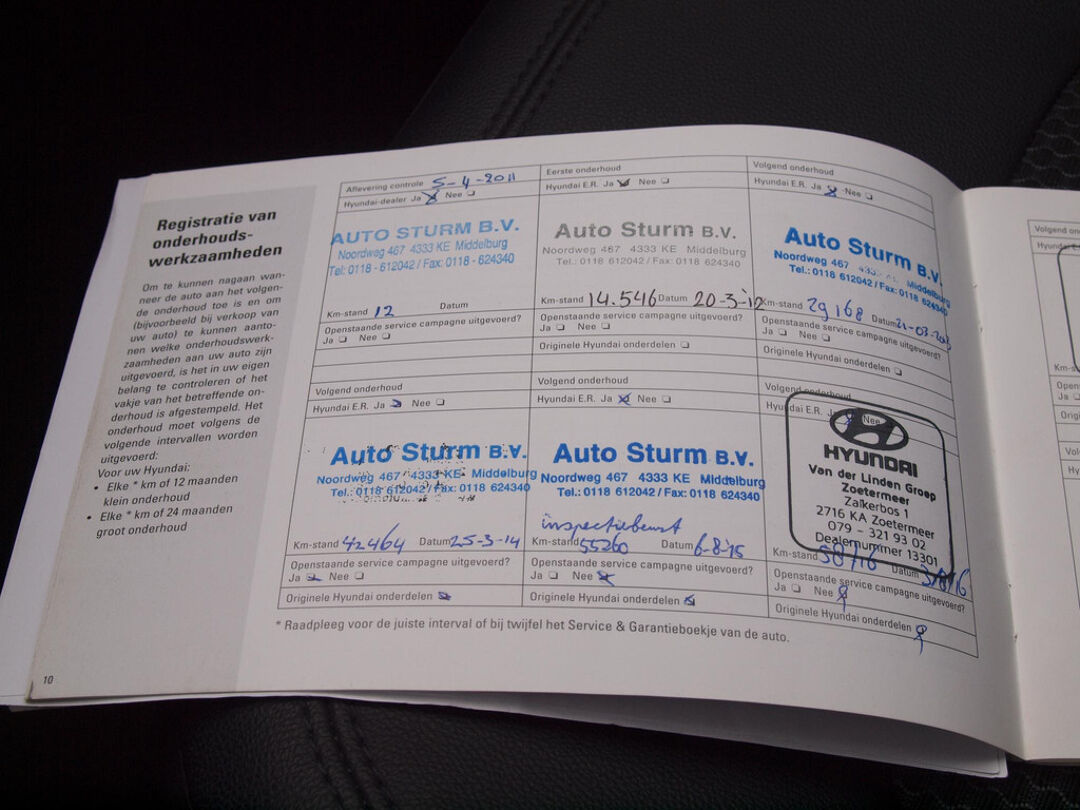 Registratie van
onderhouds-
werkzaamheden
Om te kunnen nagaan wan-
neer de auto aan het volgen-
de onderhoud toe is en om
(bijvoorbeeld bij verkoop van
uw auto) te kunnen aanto-
nen welke onderhoudswerk-
zaamheden aan uw auto zijn
uitgevoerd, is het in uw eigen
belang te controleren of het
vakje van het betreffende on-
derhoud is afgestempeld. Het
onderhoud moet volgens de
volgende intervallen worden
uitgevoerd:
Voor uw Hyundai:
• Elke * km of 12 maanden
klein onderhoud
• Elke * km of 24 maanden
groot onderhoud
10
Aflevering controle 5-4-2011
Hyundai-dealer Ja Nee
AUTO STURM B.V.
Noordweg 467 4333 KE Middelburg
Tel: 0118 - 612042 / Fax: 0118 - 624340
Km-stand 12 Datum
Openstaande service campagne uitgevoerd?
Ja Nee
Eerste onderhoud
Hyundai E.R. Ja Nee
Auto Sturm B.V.
Noordweg 467 4333 KE Middelburg
Tel.: 0118 612042 / Fax: 0118 624340
Km-stand 14.546 Datum 20-3-12
Openstaande service campagne uitgevoerd?
Ja Nee
Originele Hyundai onderdelen
Volgend onderhoud
Hyundai E.R. Ja Nee
Auto Sturm B.V.
Noordweg 467 Middelburg
Tel.: 0118 612042 / Fax: 0118 624340
Km-stand 29168 Datum 21-03-2013
Openstaande service campagne uitgevoerd?
Ja Nee
Originele Hyundai onderdelen
Volgend onderhoud
Hyundai E.R. Ja Nee
Auto Sturm B.V.
Noordweg 467 4333 KE Middelburg
Tel.: 0118 612042 / Fax: 0118 624340
Km-stand 42464 Datum 25-3-14
Openstaande service campagne uitgevoerd?
Ja Nee
Originele Hyundai onderdelen
Volgend onderhoud
Hyundai E.R. Ja Nee
Auto Sturm B.V.
Noordweg 467 4333 KE Middelburg
Tel.: 0118 612042 / Fax: 0118 624340
inspectiebeurt
Km-stand 55260 Datum 6-8-15
Openstaande service campagne uitgevoerd?
Ja Nee
Originele Hyundai onderdelen
Volgend onderhoud
Hyundai E.R. Ja Nee
HYUNDAI
Van der Linden Groep
Zoetermeer
Zalkerbos 1
2716 KA Zoetermeer
079 - 321 93 02
Dealernummer 13301
Km-stand 58716 Datum
Openstaande service campagne uitgevoerd?
Ja Nee
Originele Hyundai onderdelen
* Raadpleeg voor de juiste interval of bij twijfel het Service & Garantieboekje van de auto.